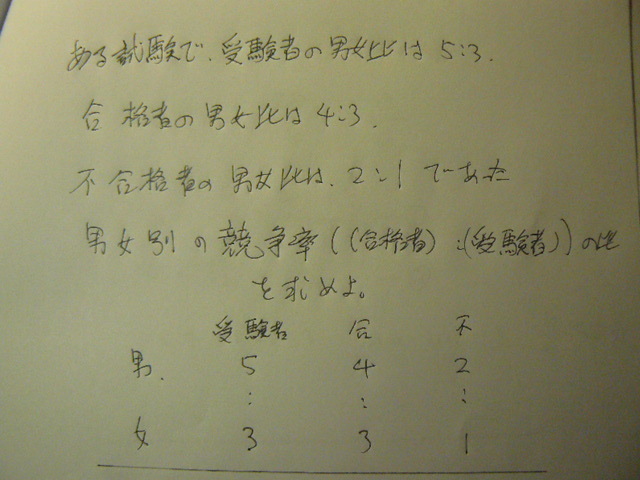 ある試験で、受験者の男女比は 5:3.
合格者の男女比は 4:3.
不合格者の男女比は、2:1であった
男女別の競争率((合格者):(受験者))の比
を求めよ。
受験者 合 不
男. 5 4 2
: : :
女 3 3 1